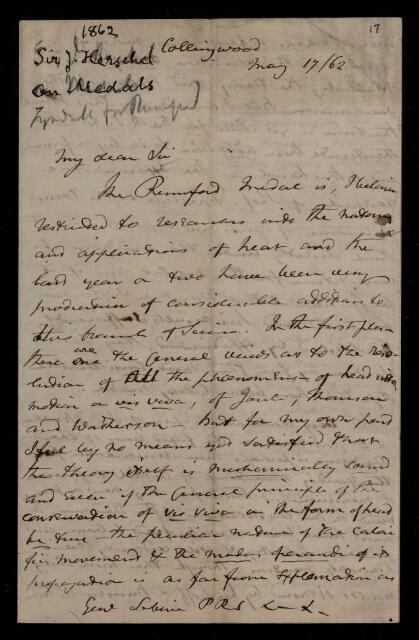 1862
17
Sir J. Herschel
on Medals
Tyndall for Rumford
Collingwood
May 17/62
My dear Sir
The Rumford Medal is, I believe
restricted to researches into the nature
and applications of heat and the
last year or two have been very
productive of considerable additions to
this branch of Science. In the first place
there are the general views as to the reso-
lution of all the phaenomena of heat into
motion or vis viva, of Joule, Thomson
and Waterson — but for my own part
I feel by no means yet satisfied that
the theory itself is mechanically sound
and even if the general principle of the
conservation of vis viva in the form of heat
be true the peculiar nature of the calori
fic movement & the modus operandi of its
propagation is as far from explanation as
Genl Sabine P R S &c &c